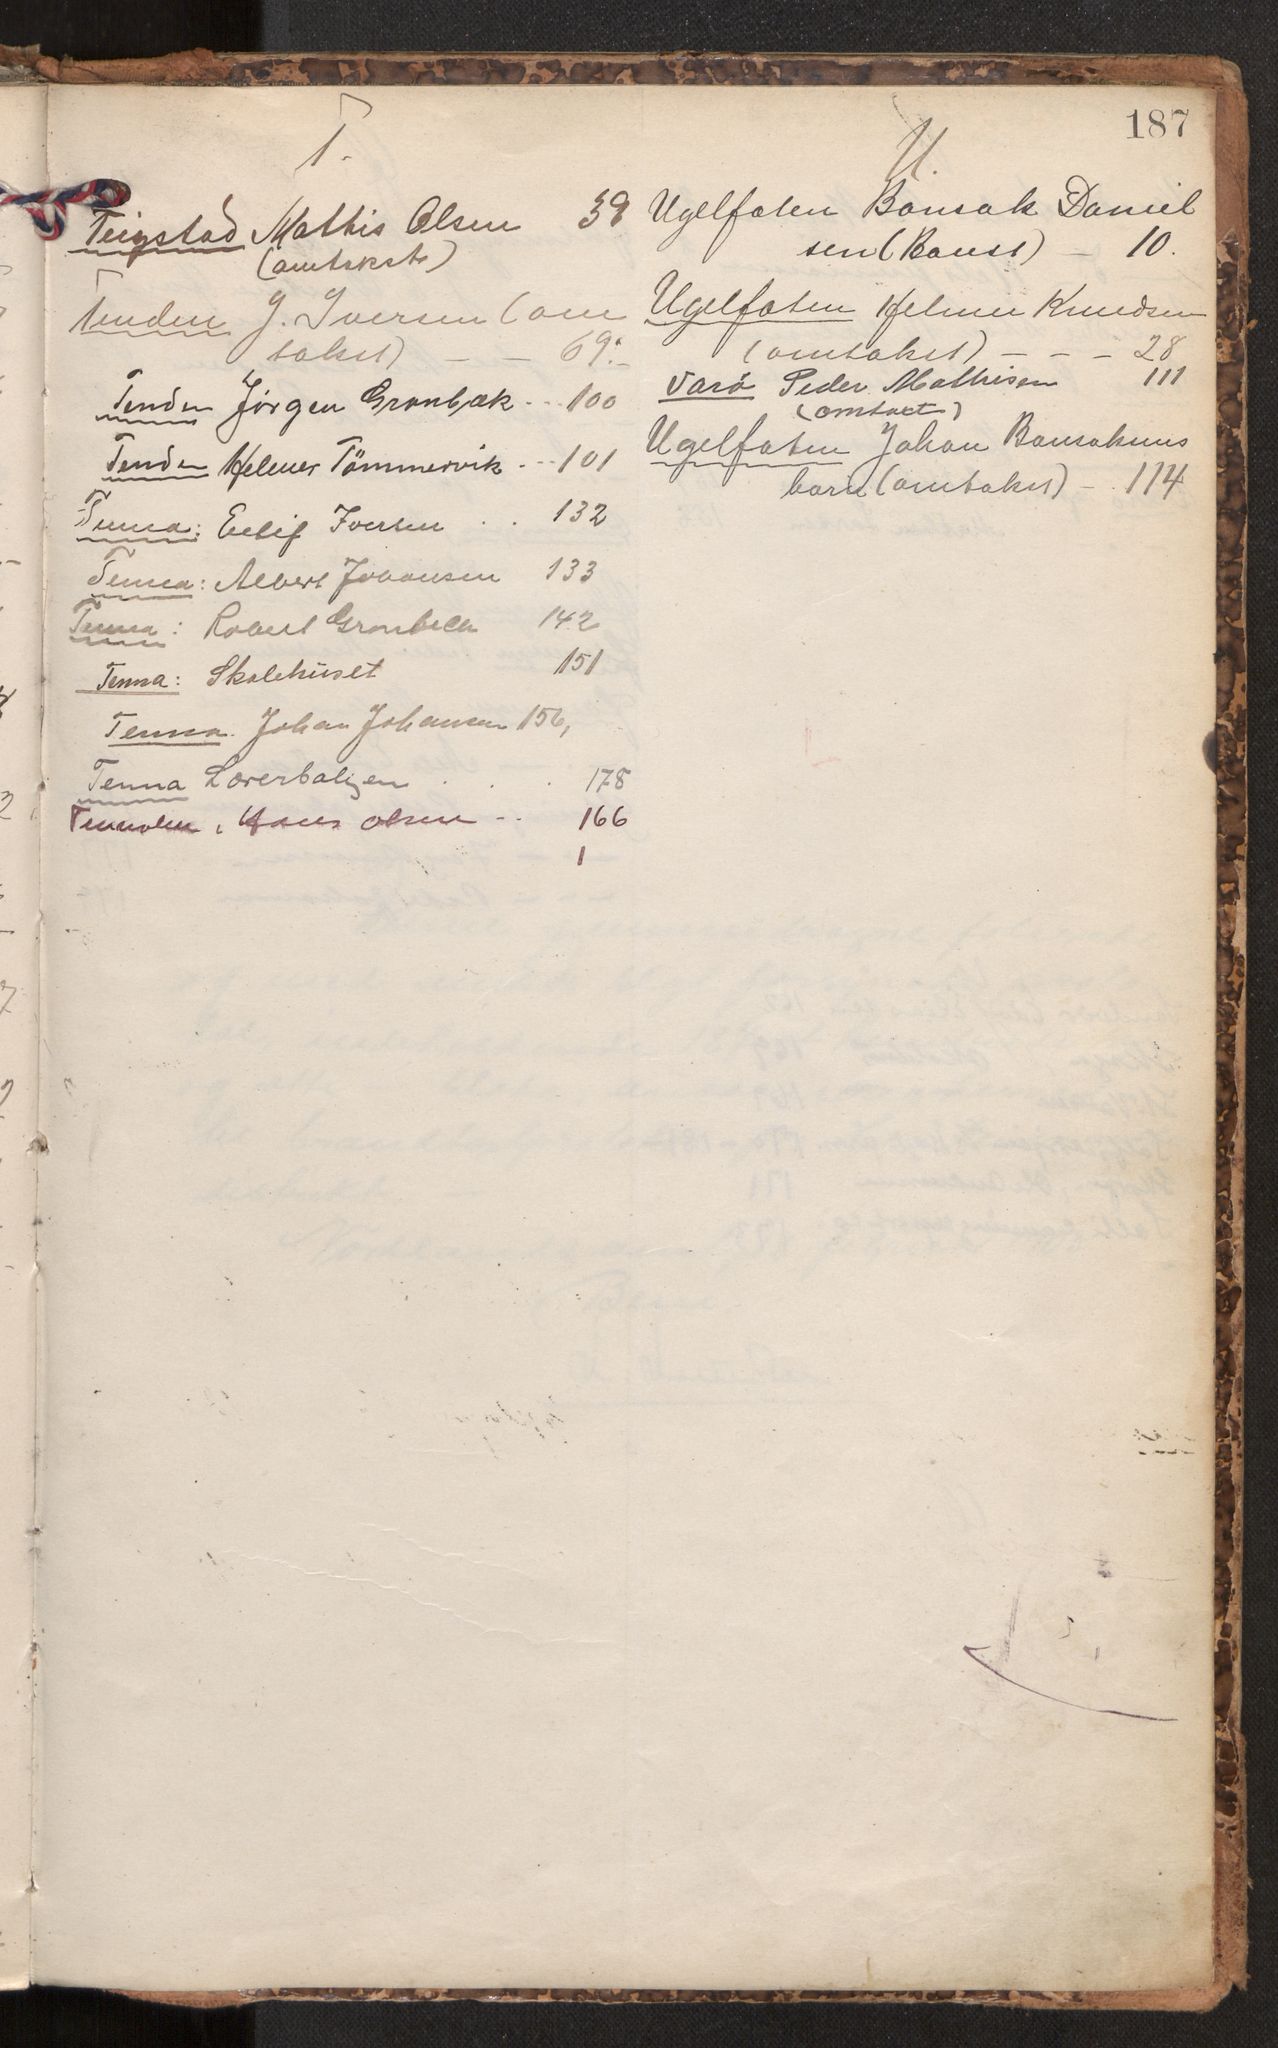 187
T.
Teigstad Mathis Olsen 39
(omtakst)
Tenden J. Iversen (om
takst) - - 69.
Tenden Jörgen Grønbæk - - 100
Tenden Helmer Tömmervik - - 101
Tenna: Eelif Iversen . . 132
Tenna: Albert Johansen 133
Tenna: Robert Grønbech 142
Tenna: Skolehuset 151
Tenna. Johan Johansen 156,
Tenna Lærerboligen . . . 178
Tennholm, Hans Olsen - - 166
1
U.
Ugelfaten Bansak Daniel
sen (Baust) - 10.
Ugelfaten Helmer Knudsen
(omtakst) - - - 28
Varö Peder Mathisen 111
(omtaxt)
Ugelfaten Johan Bansaksens
barn (omtakst) - . 114